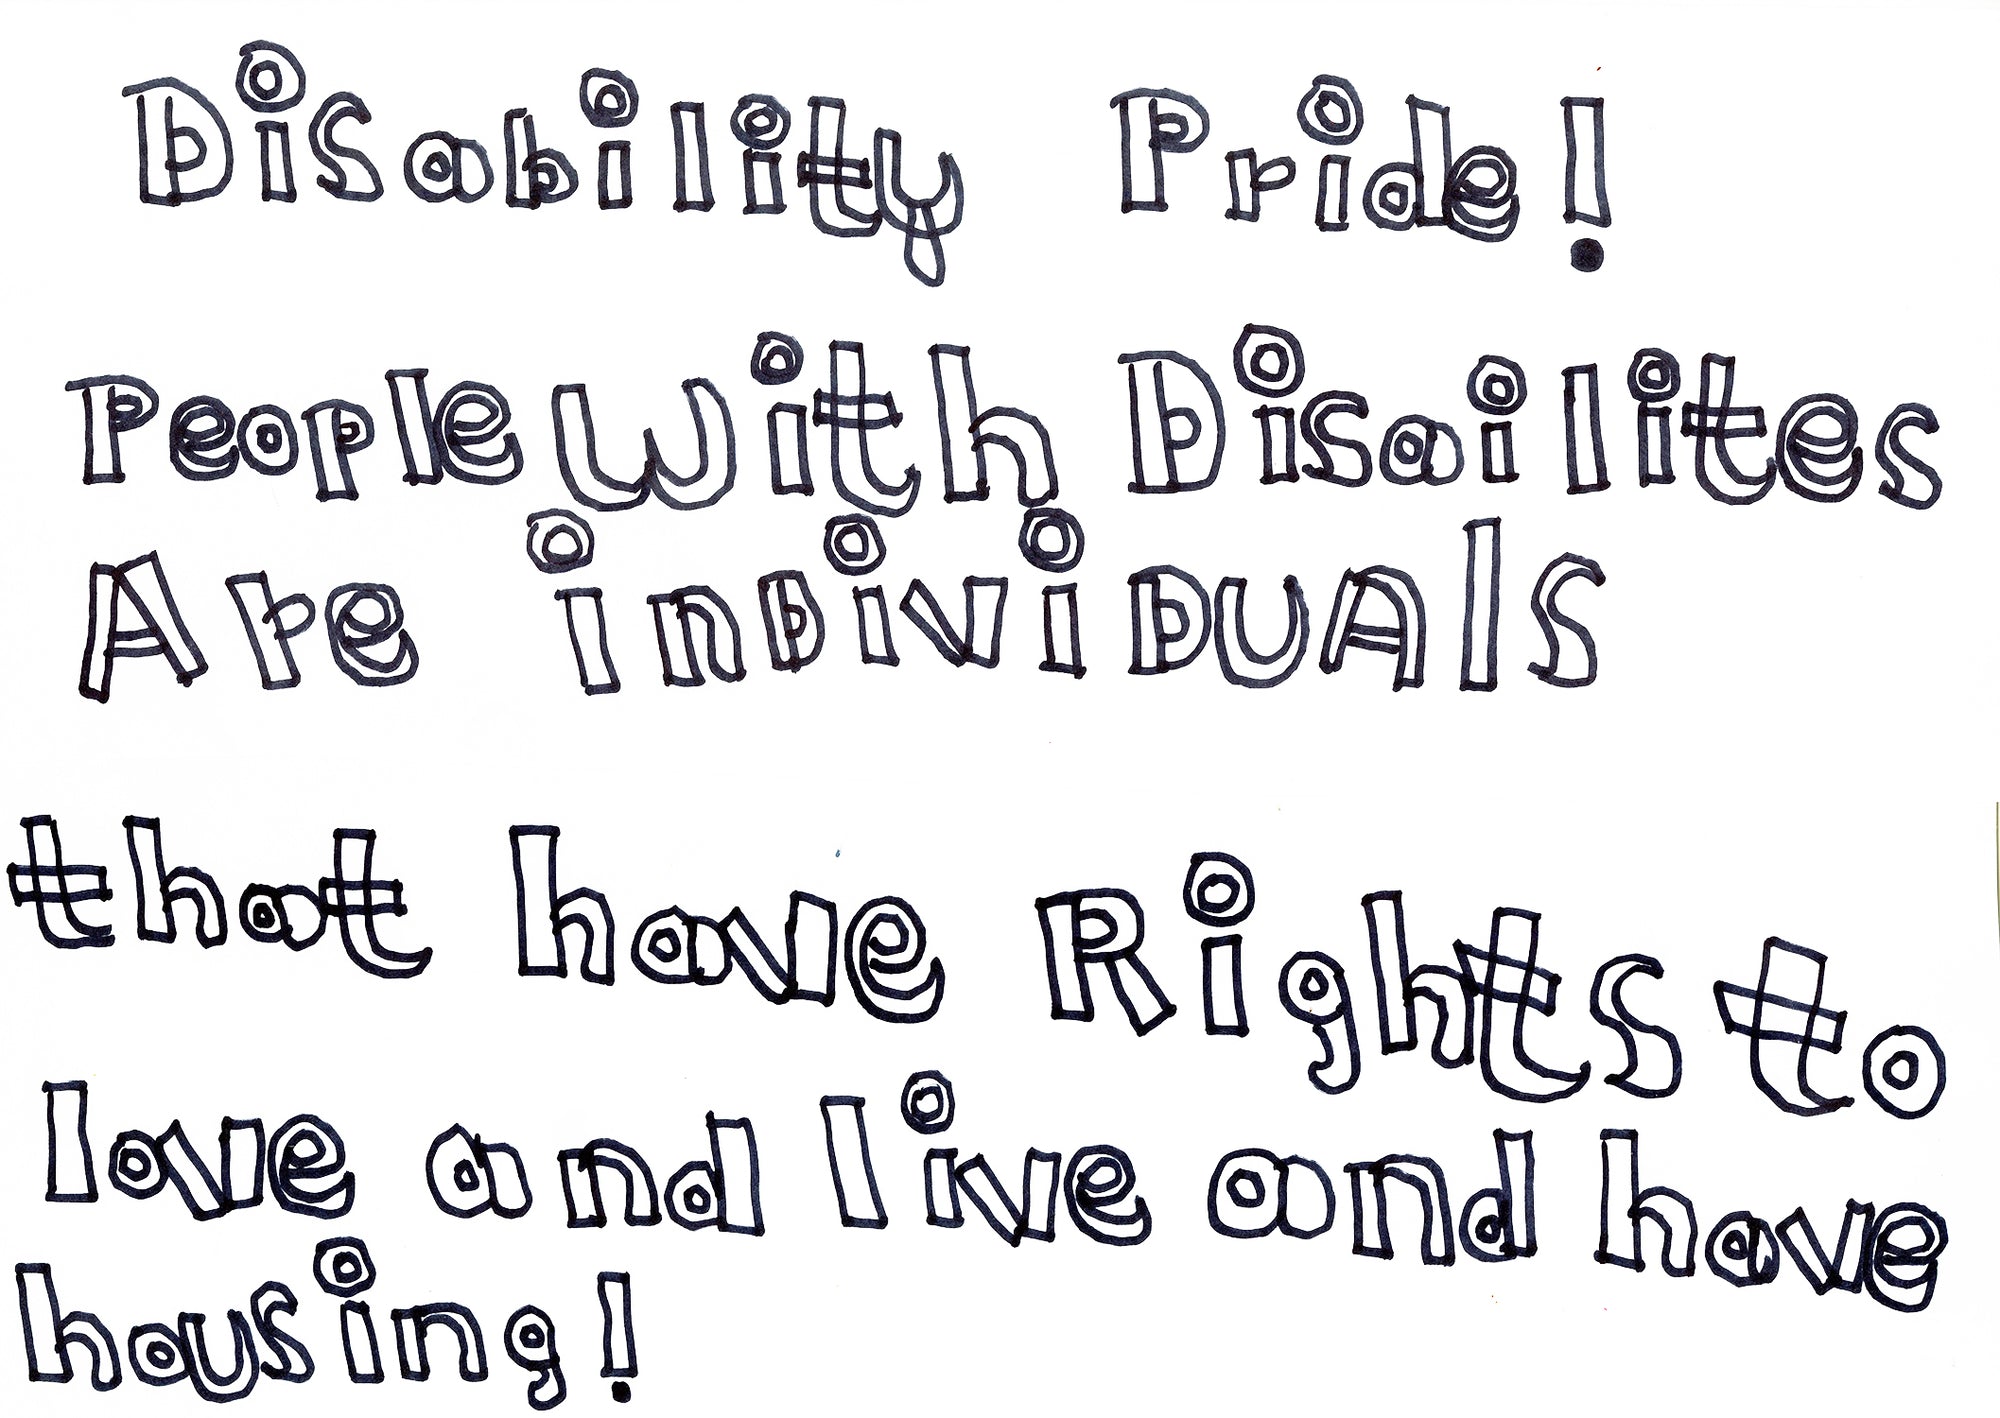 Disability Pride!
People with Disailites
Are inDiviDUAls
that have Rights to
love and live and have
housing!